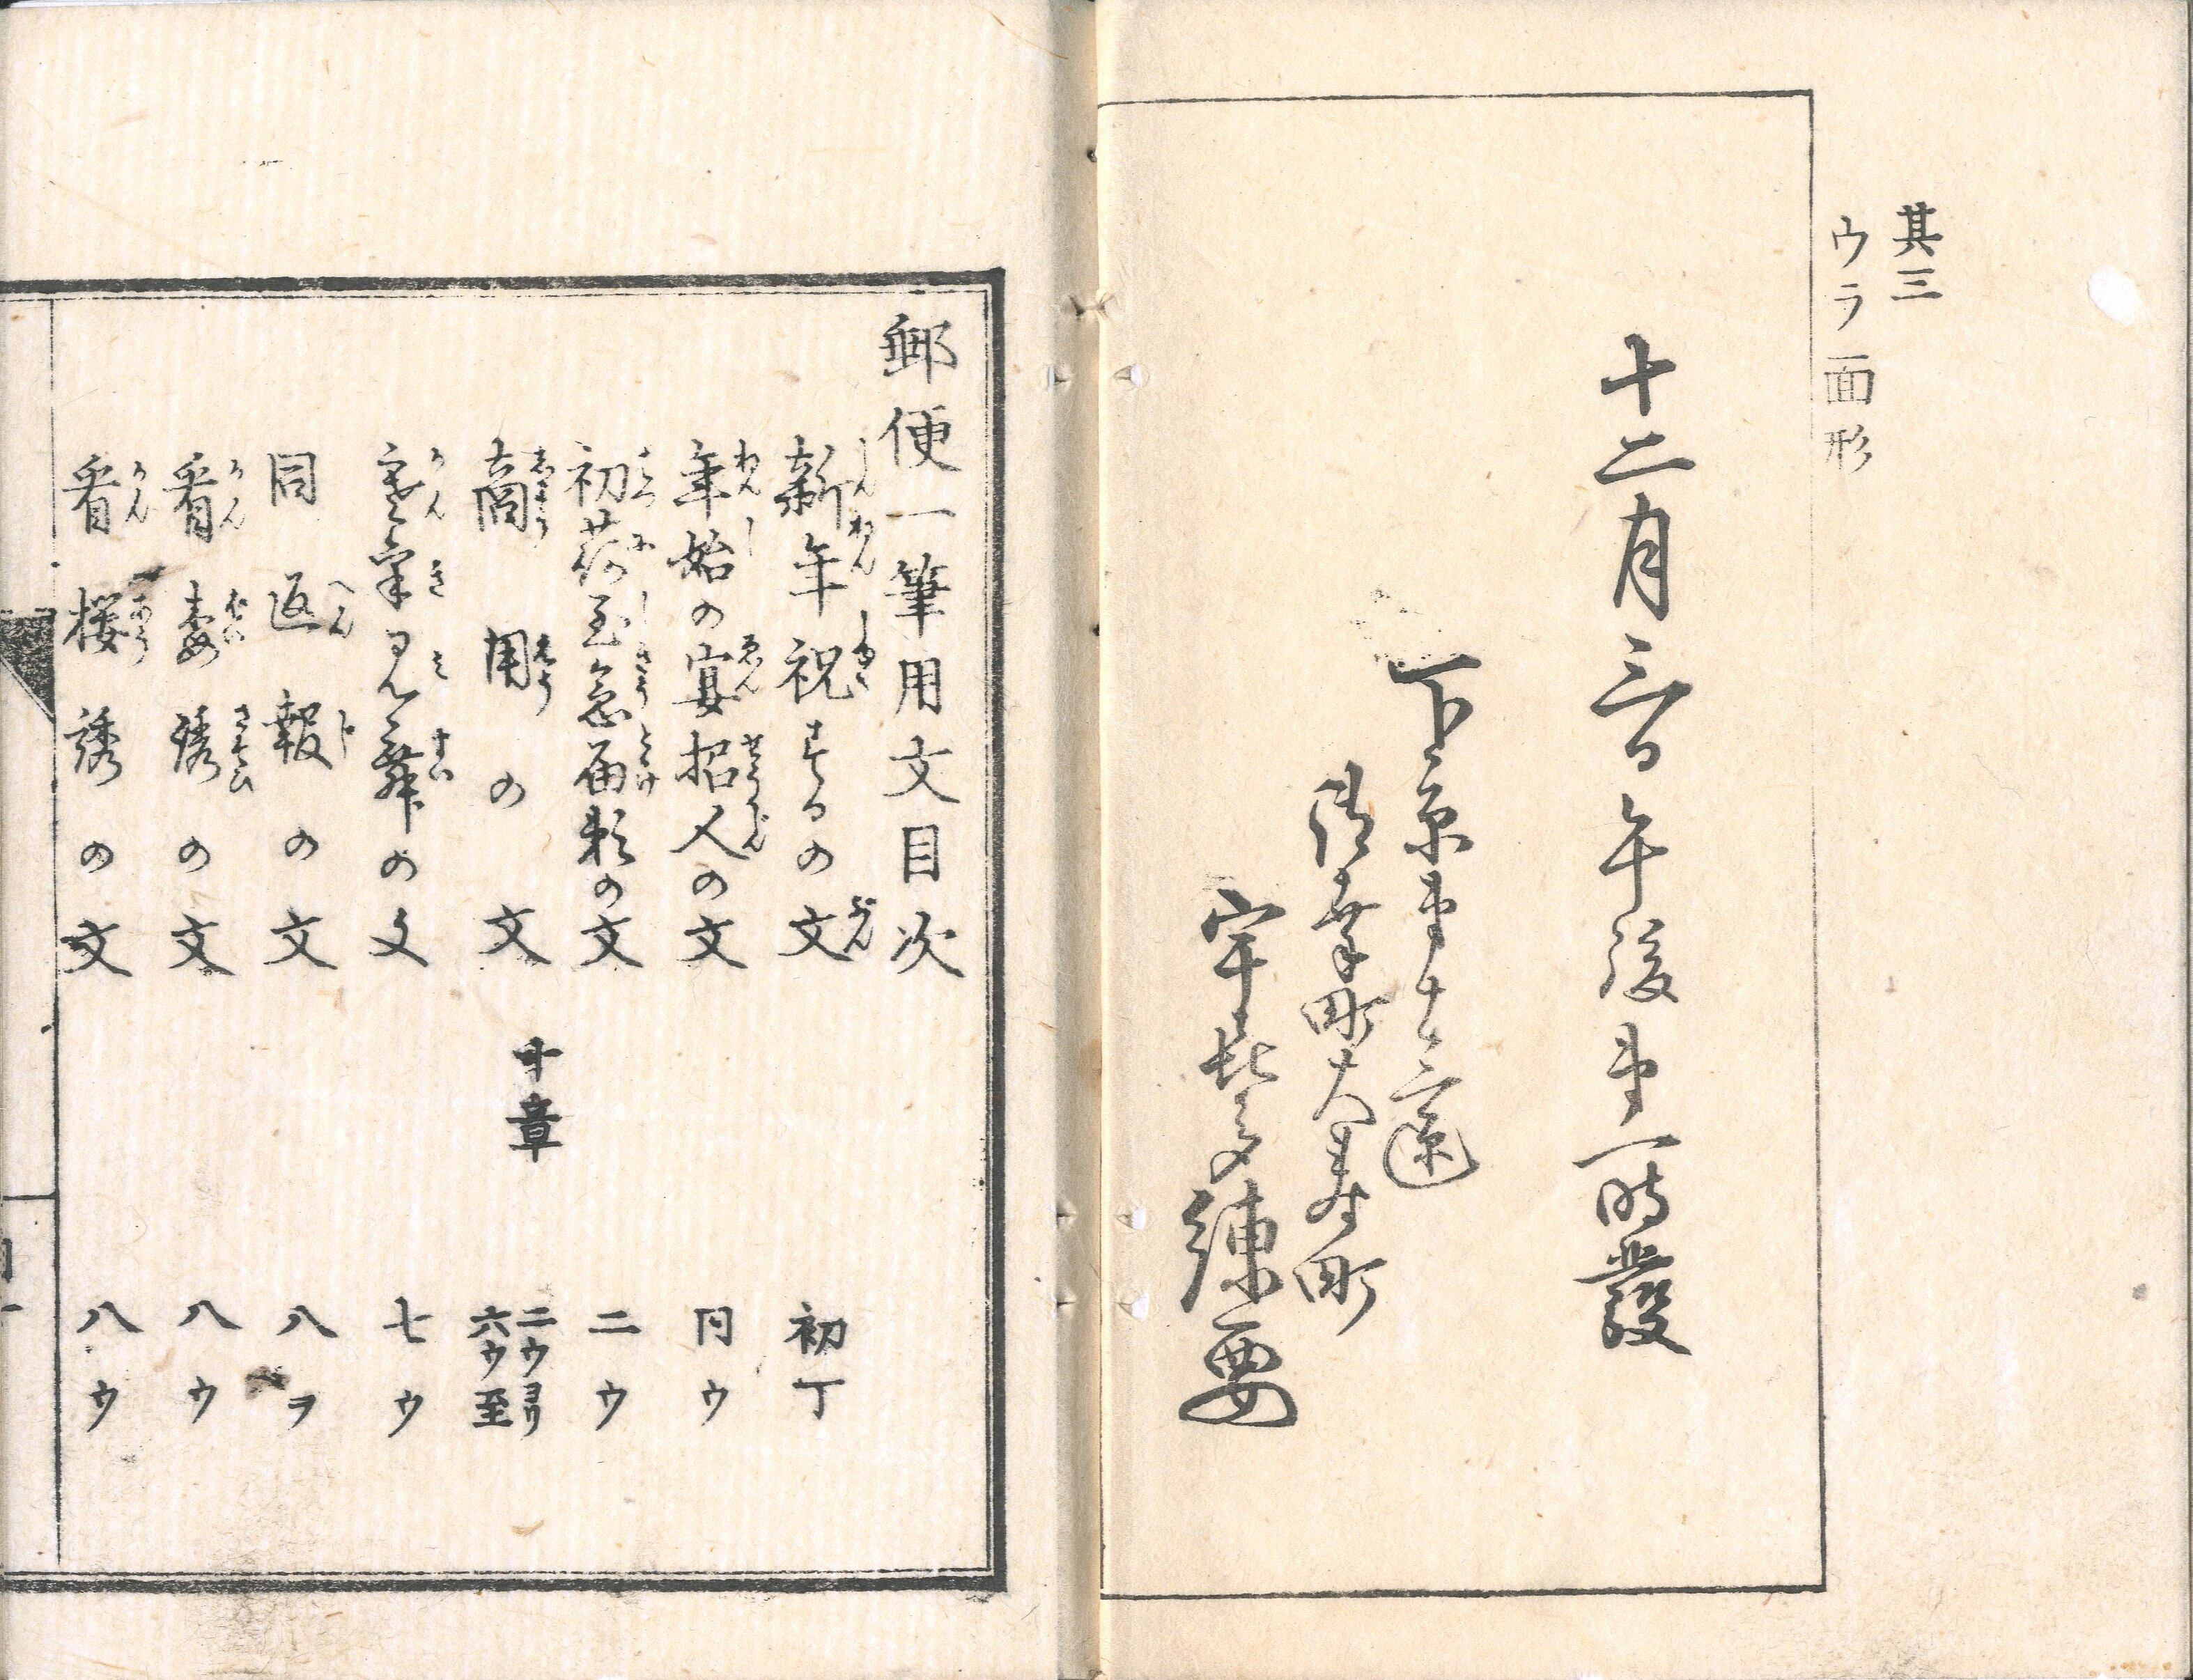 其三
ウラ面形
十二月三日午後第一時發
下京第十三區
御幸町大寿町
宇喜多練要
郵便一筆用文目次
新年祝するの文 初丁
年始の宴招人の文 同ウ
初荷至急届頼の文 二ウ
商用の文 十章 二ウヨリ六ウ至
寒氣見舞の文 七ウ
同返報の文 八ヲ
看梅誘の文 八ウ
看櫻誘の文 八ウ